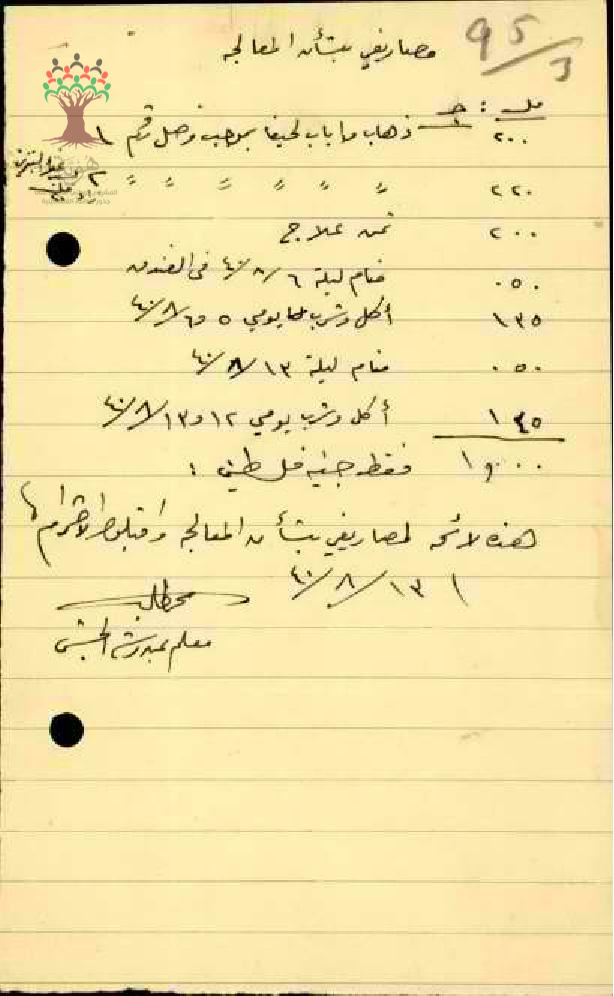 95/3
مصاريفي بشأن المعالجه
مل : جـ
٢٠٠ ذهاب واياب لحيفا بموجب وصل رقم ١
٢٢٠ " " " " " " ٢
٢٠٠ ثمن علاج
٠٥٠ منام ليلة ٤٠/٨/٦ في الفندق
١٣٥ أكل وشرب يومي ٥ و٤٠/٨/٦
٠٥٠ منام ليلة ٤٠/٨/١٣
١٤٥ أكل وشرب يومي ١٢ و٤٠/٨/١٣
١,٠٠٠ فقط جنيه فلسطيني :
هذه لائحة لمصاريفي بشأن المعالجه واقبلوا الاحترام
٤٠/٨/١٣
معلم بمدرسة